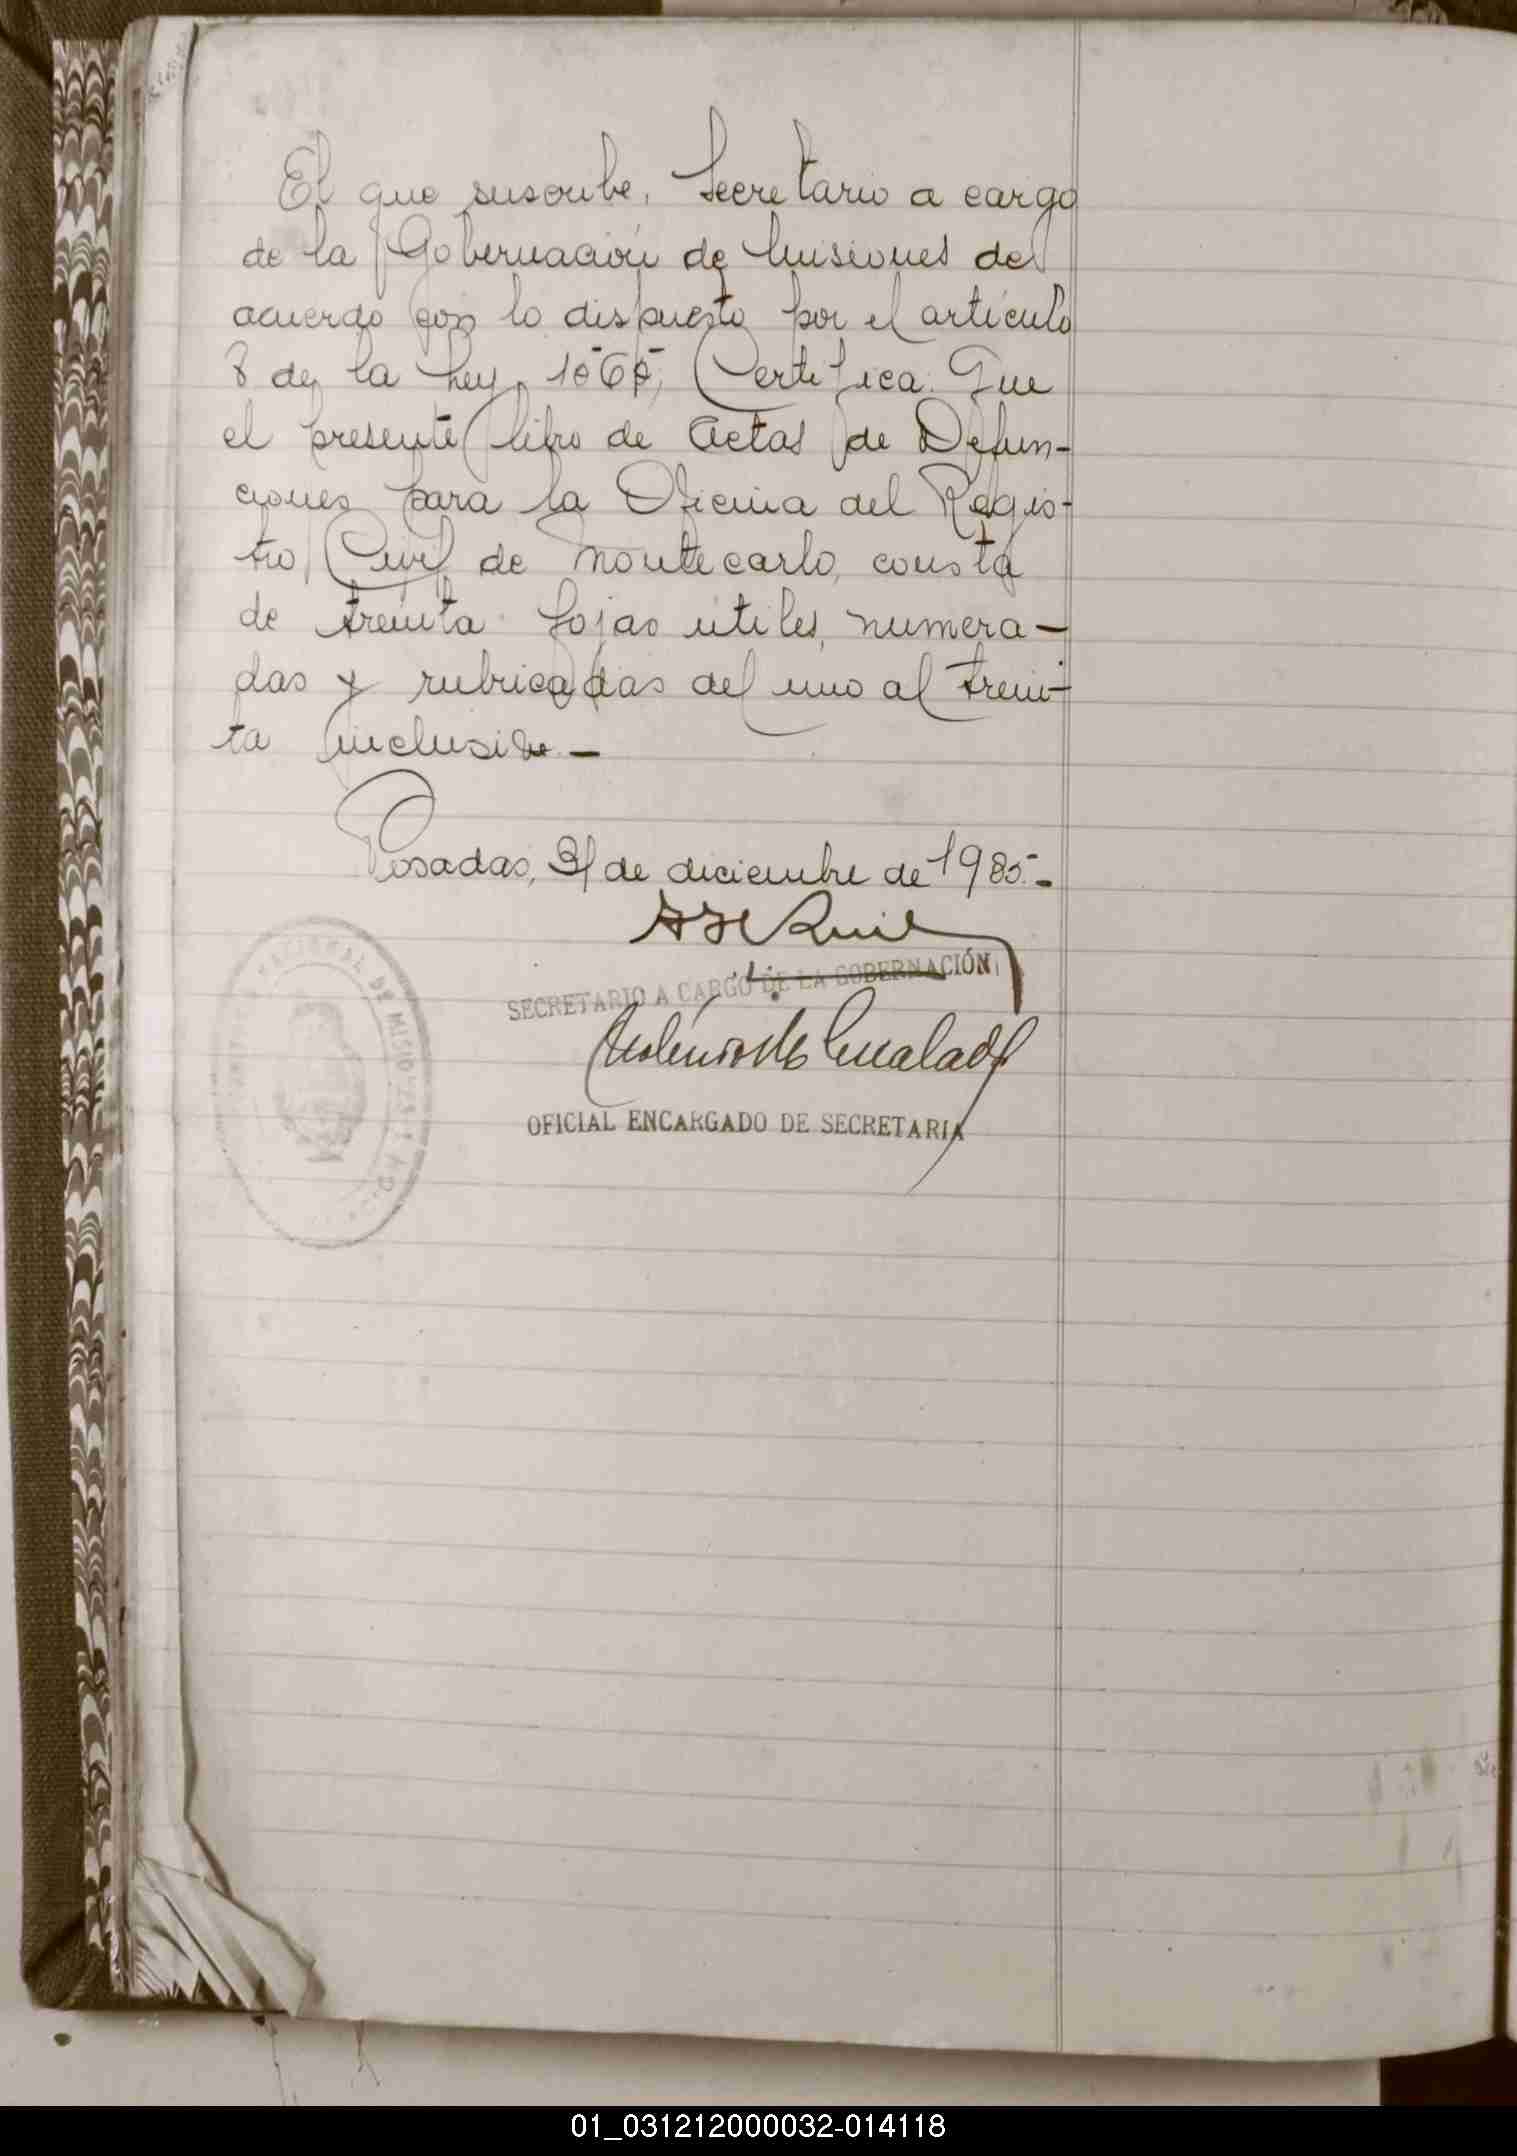 El que suscribe, Secretario a cargo
de la Gobernación de Misiones de
acuerdo con lo dispuesto por el artículo
8 de la Ley 1565, Certifica: Que
el presente libro de Actas de Defun-
ciones para la Oficina del Regis-
tro Civil de Montecarlo, consta
de treinta fojas utiles, numera-
das y rubricadas del uno al trein-
ta inclusive.-
Posadas, 31 de diciembre de 1935.-
SECRETARIO A CARGO DE LA GOBERNACIÓN
OFICIAL ENCARGADO DE SECRETARIA
NACIONAL DE MISIONES
01_031212000032-014118